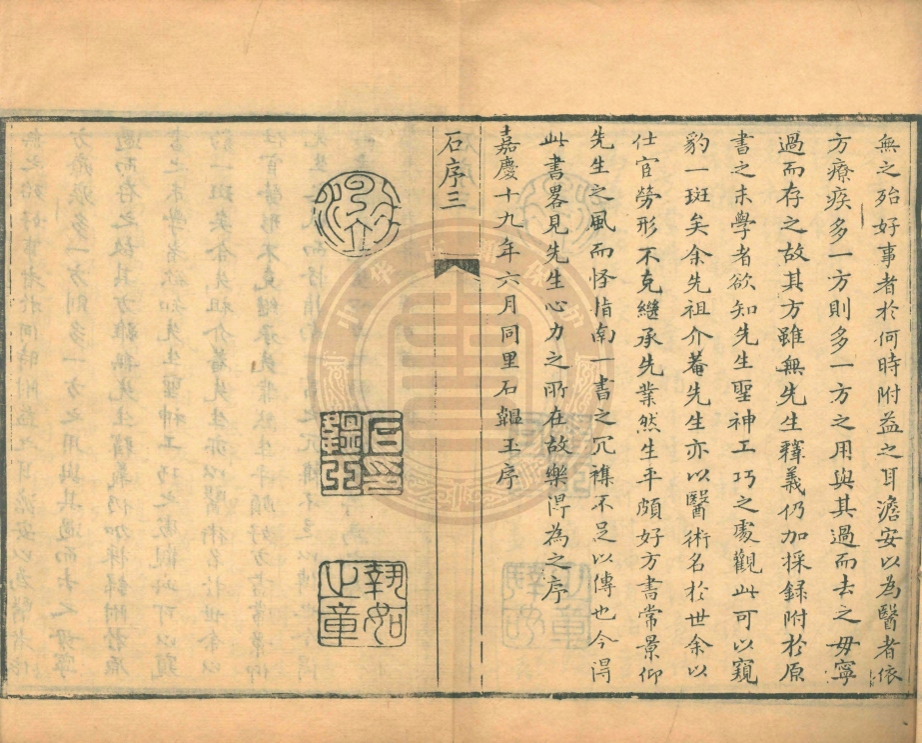 無之殆好事者於何時附益之耳澹安以為醫者依
方療疾多一方則多一方之用與其過而去之毋寧
過而存之故其方雖無先生釋義仍加採録附於原
書之末學者欲知先生聖神工巧之處觀此可以窺
豹一斑矣余先祖介菴先生亦以醫術名於世余以
仕宦勞形不克繼承先業然生平頗好方書常景仰
先生之風而怪指南一書之冗襍不足以傳也今淂
此書畧見先生心力之所在故樂淂為之序
嘉慶十九年六月同里石韞玉序
石序三
石韞玉印
執如之章